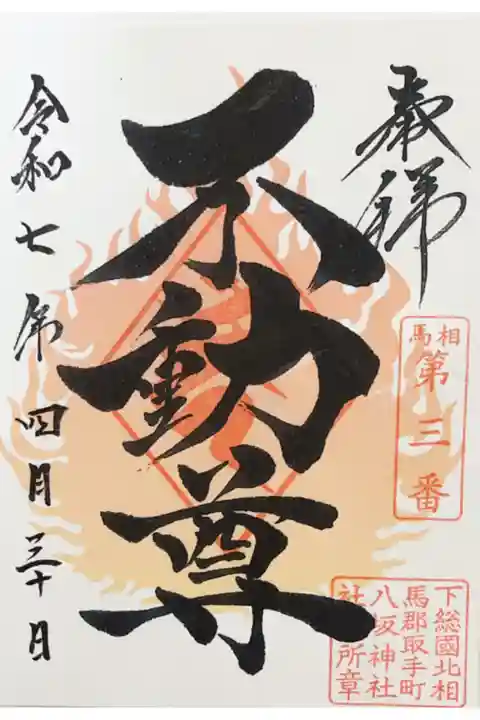 奉拝
相馬
第三番
不動尊
下総國北相
馬郡取手町
八坂神社
社所章
令和七年四月三十日